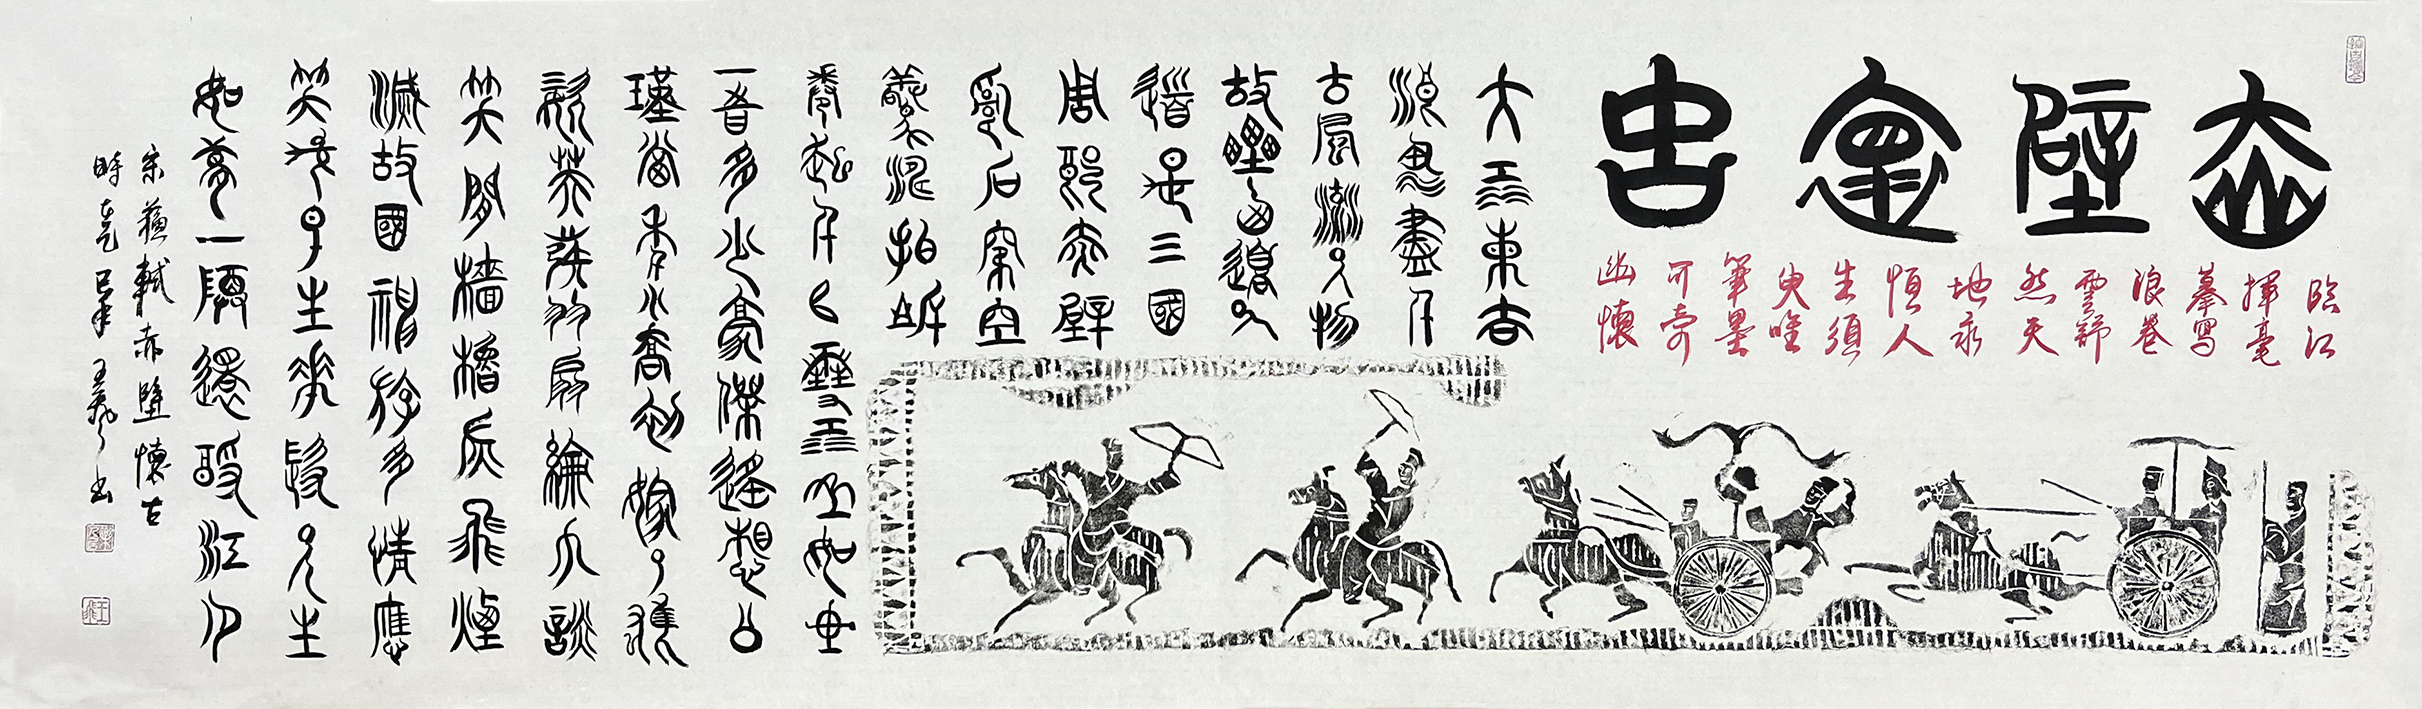 赤壁懷古
臨江
揮毫
摹写
浪卷
雲舒
然天
地永
恒人
生須
臾唯
筆墨
可寄
幽懷
大江東去
浪淘盡千
古風流人物
故壘西邊人
道是三國
周郎赤壁
亂石穿空
驚濤拍岸
卷起千堆雪江山如畫
一時多少豪傑遙想公
瑾當年小喬初嫁了雄
姿英發羽扇綸巾談
笑間檣櫓灰飛煙
滅故國神游多情應
笑我早生華髮人生
如夢一尊還酹江月
宋蘇軾赤壁懷古
時在乙巳年王書